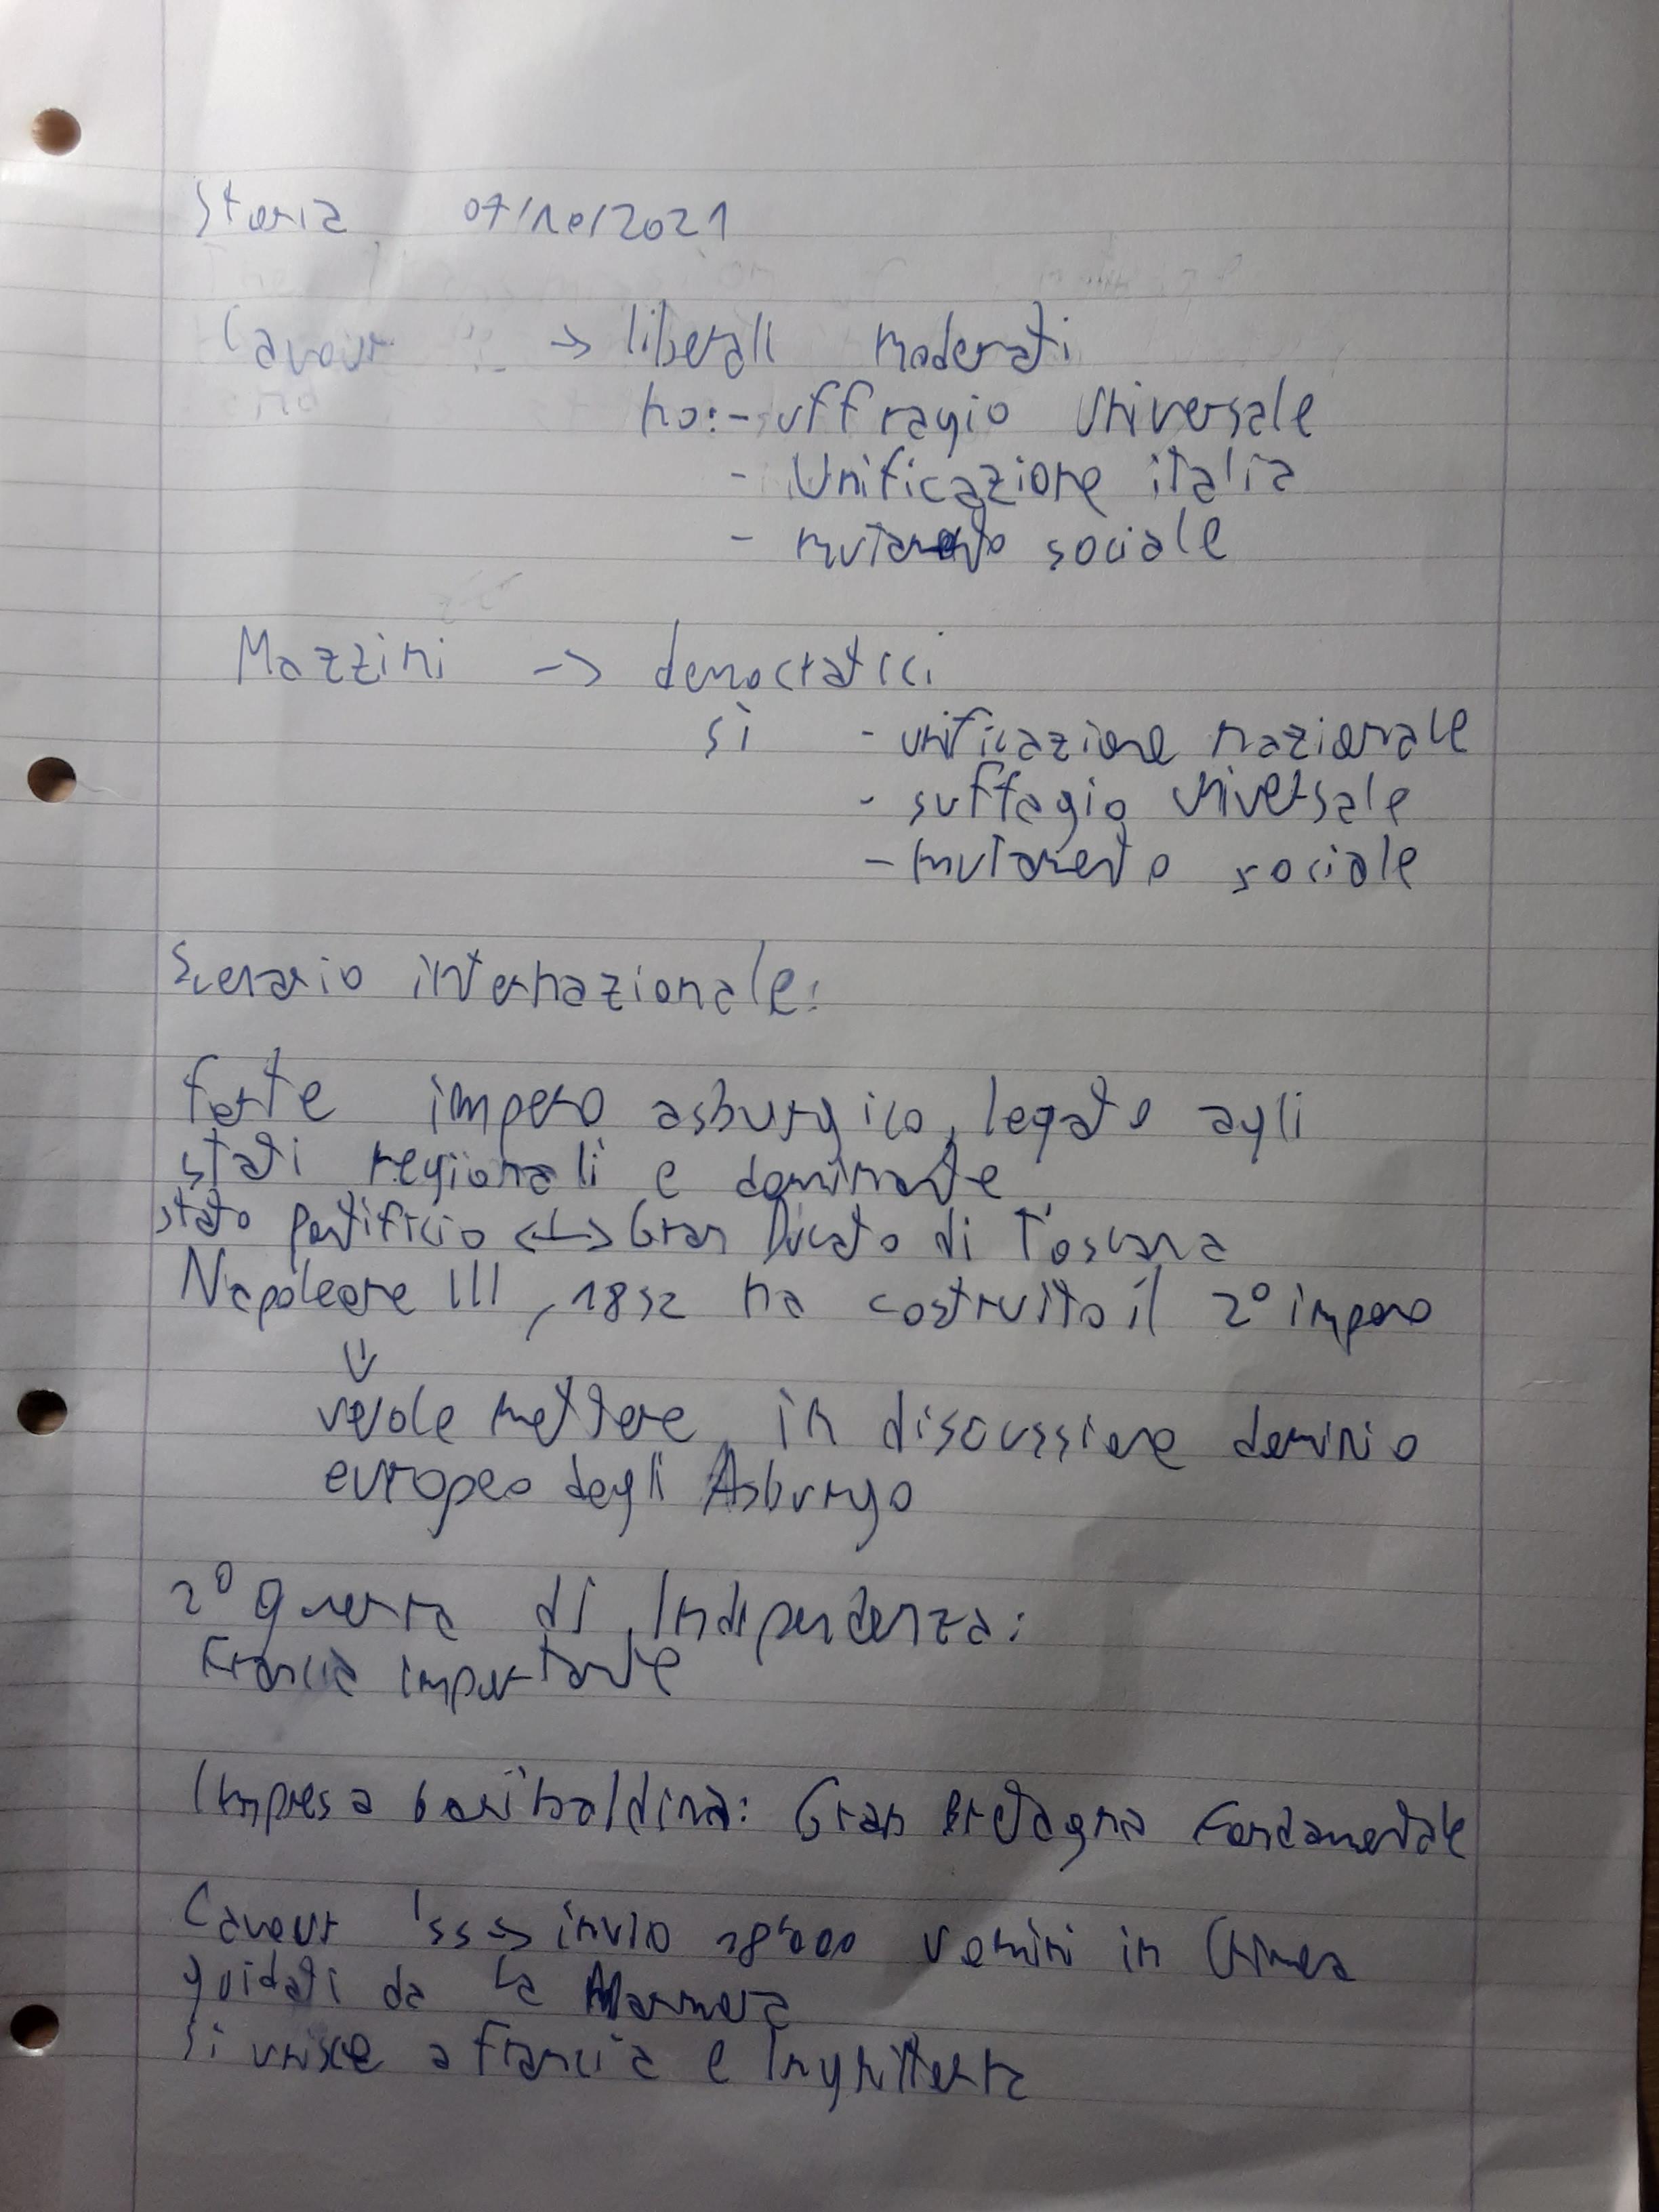 Storia 07/10/2021
Cavour → liberali moderati
no: - suffragio universale
- Unificazione italia
- mutamento sociale
Mazzini → democratici
sì - unificazione nazionale
- suffagio universale
- mutamento sociale
Scenario internazionale:
forte impero asburgico, legato agli
stati regionali e dominante
stato pontificio <-> Gran Ducato di Toscana
Napoleone III, 1852 ha costruito il 2° impero
⇓
vuole mettere in discussione dominio
europeo degli Asburgo
2° guerra di Indipendenza:
Francia importante
Impresa Garibaldina: Gran Bretagna Fondamentale
Cavour '55 → invio 18'000 uomini in Crimea
guidati da La Marmora
Si unisce a Francia e Inghilterra